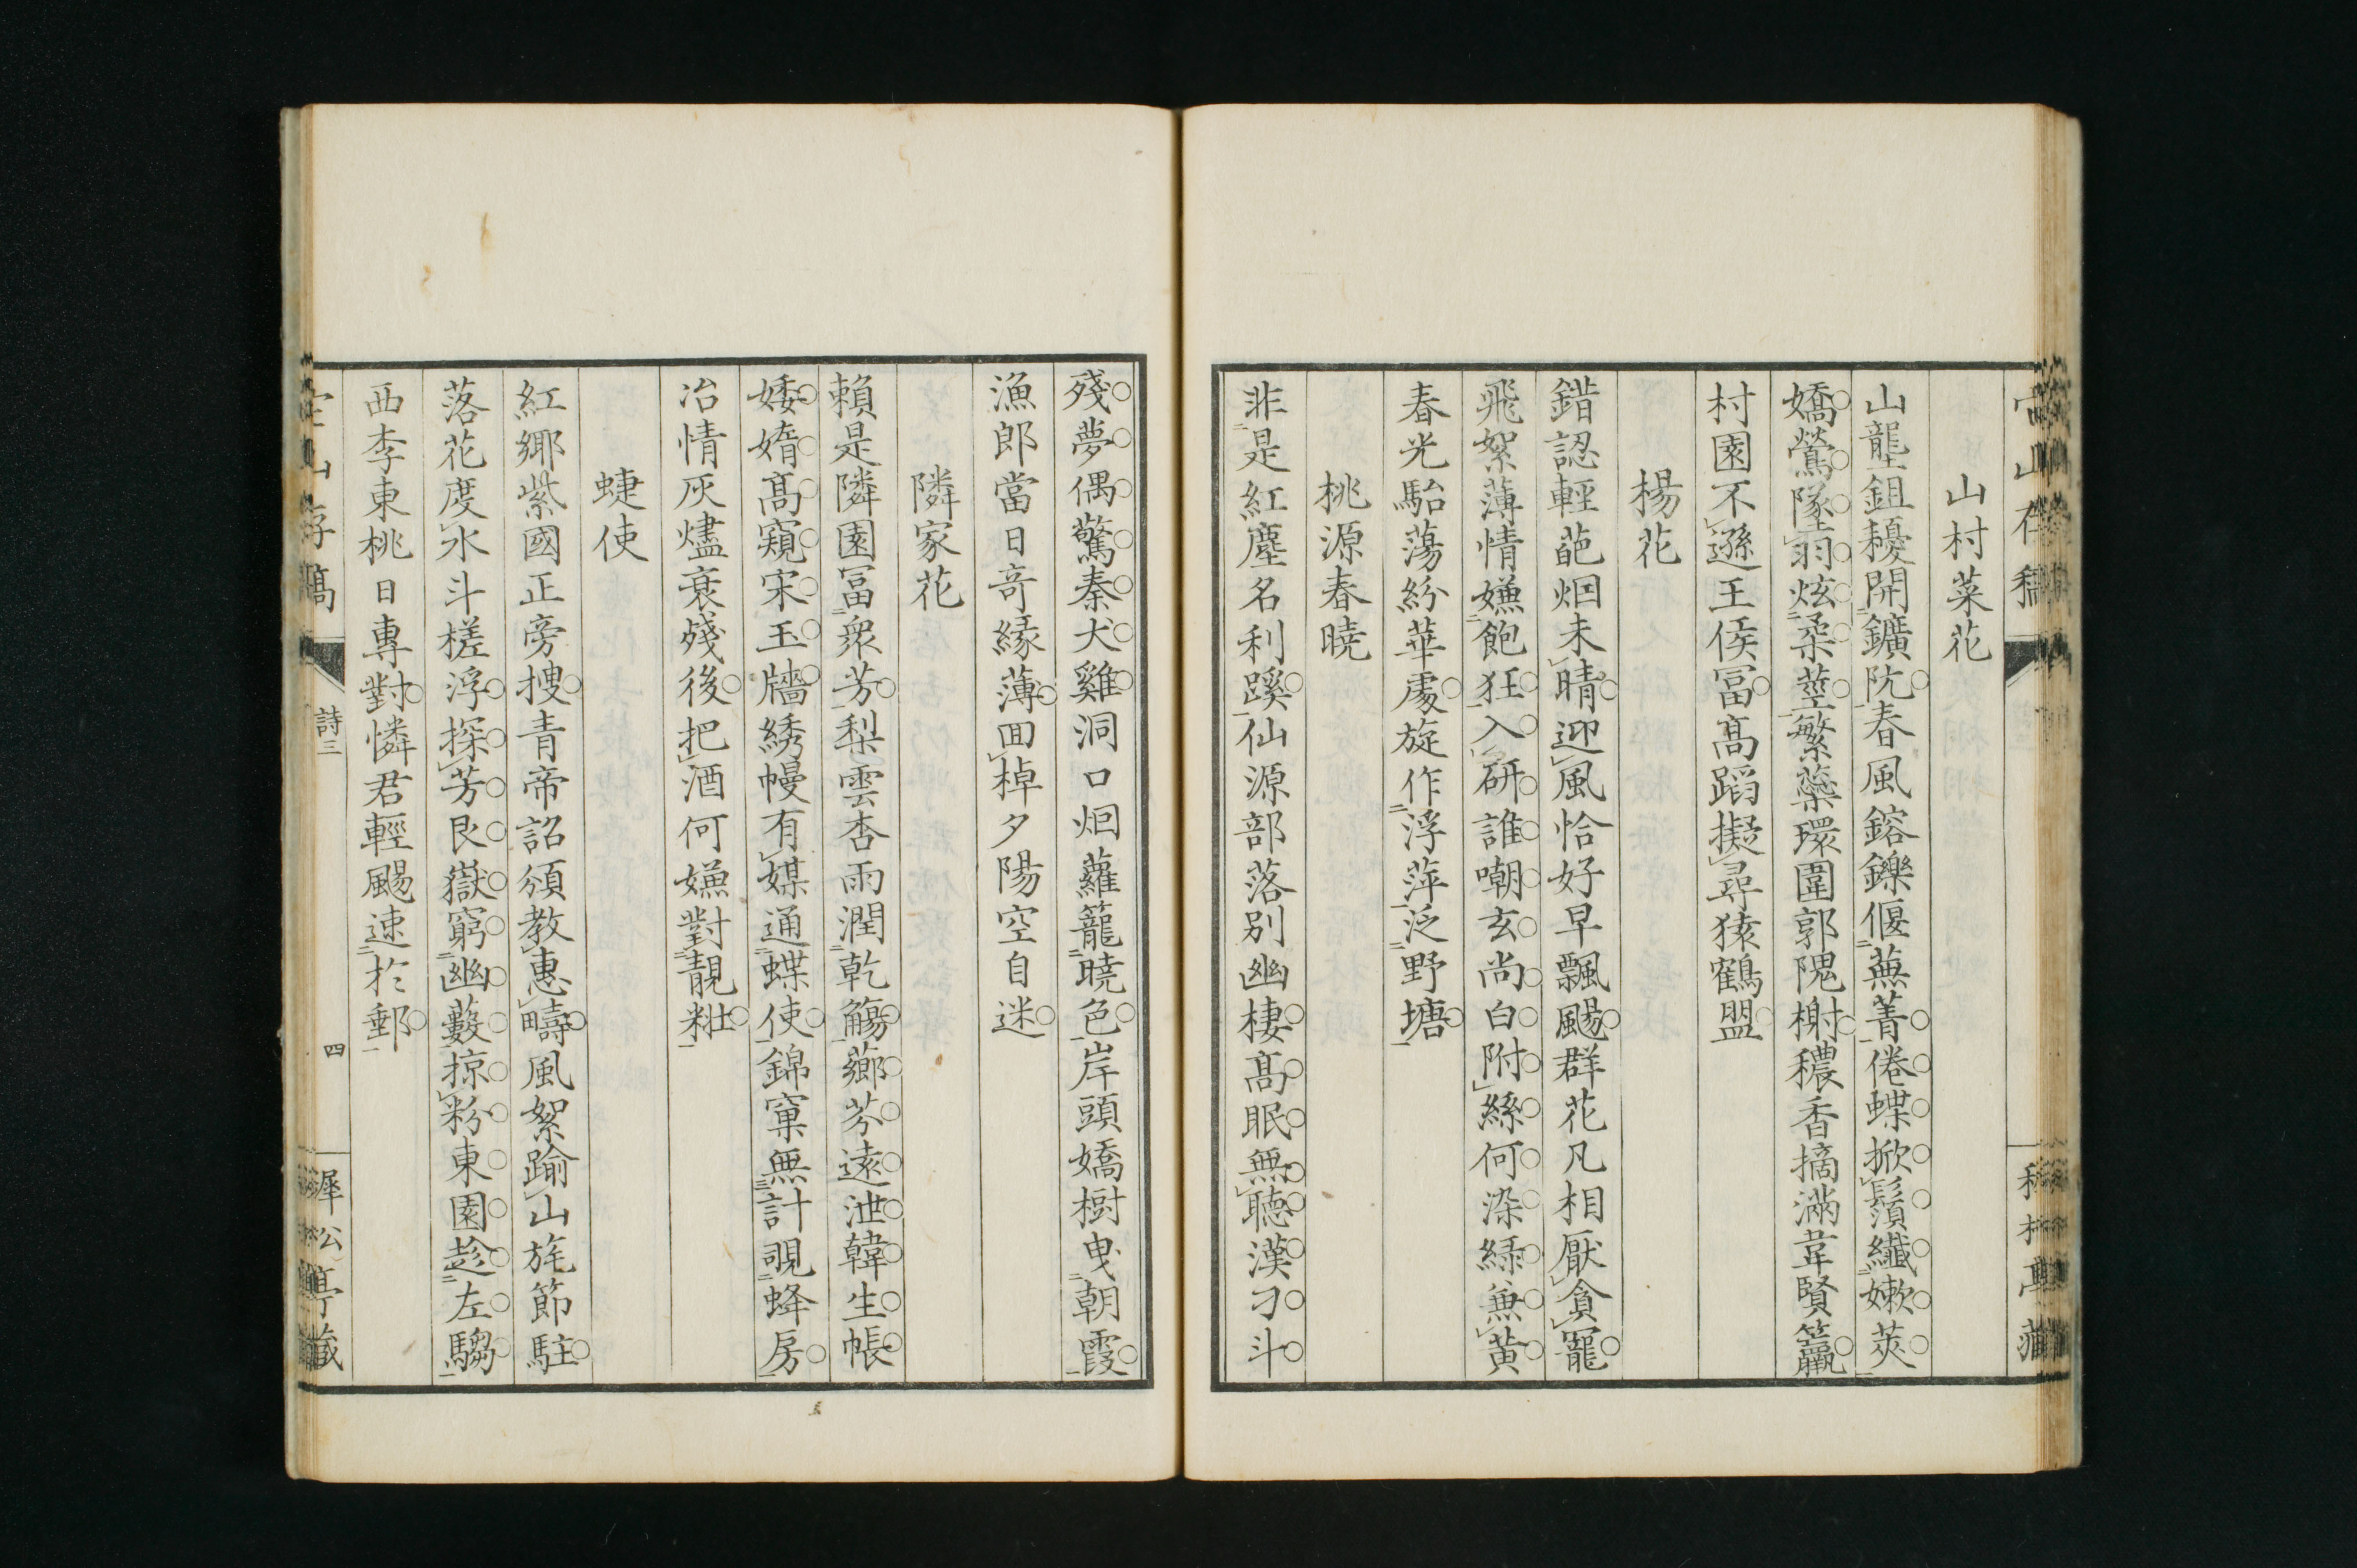 山村菜花
山壟鉏耰開鑛阬春風鎔鑠偃蕪菁倦蝶掀鬚纖嫰莢
嬌鶯隊羽炫柔莖繁蘂環圍郭隗榭穠香摘滿韋賢籯
村園不遜王侯冨髙蹈擬尋猿鶴盟
楊花
錯認輕葩烟未晴迎風恰好早飄颺群花凡相厭貪寵
飛絮薄情嫌飽狂入研誰嘲玄尚白附絲何染綠兼黃
春光駘蕩紛華處旋作浮萍泛野塘
桃源春曉
非是紅塵名利蹊仙源部落别幽棲髙眠無聽漢刁斗
殘夢偶驚秦犬雞洞口烟蘿籠曉色岸頭嬌樹曳朝霞
漁郎當日奇緣薄回棹夕陽空自迷
隣家花
賴是隣園冨衆芳梨雲杏雨潤乾觴薌芬遠泄韓生帳
婑媠髙窺宋玉牆綉幔有媒通蝶使錦窠無計覗蜂房
冶情灰燼衰殘後把酒何嫌對靚粧
蜨使
紅鄉紫國正旁搜青帝詔頒教惠疇風絮踰山旄節駐
落花度水斗槎浮探芳艮嶽窮幽藪掠粉東園趁左騶
西李東桃日專對憐君輕颺速於郵
山存稿
詩三
四
松亭藏